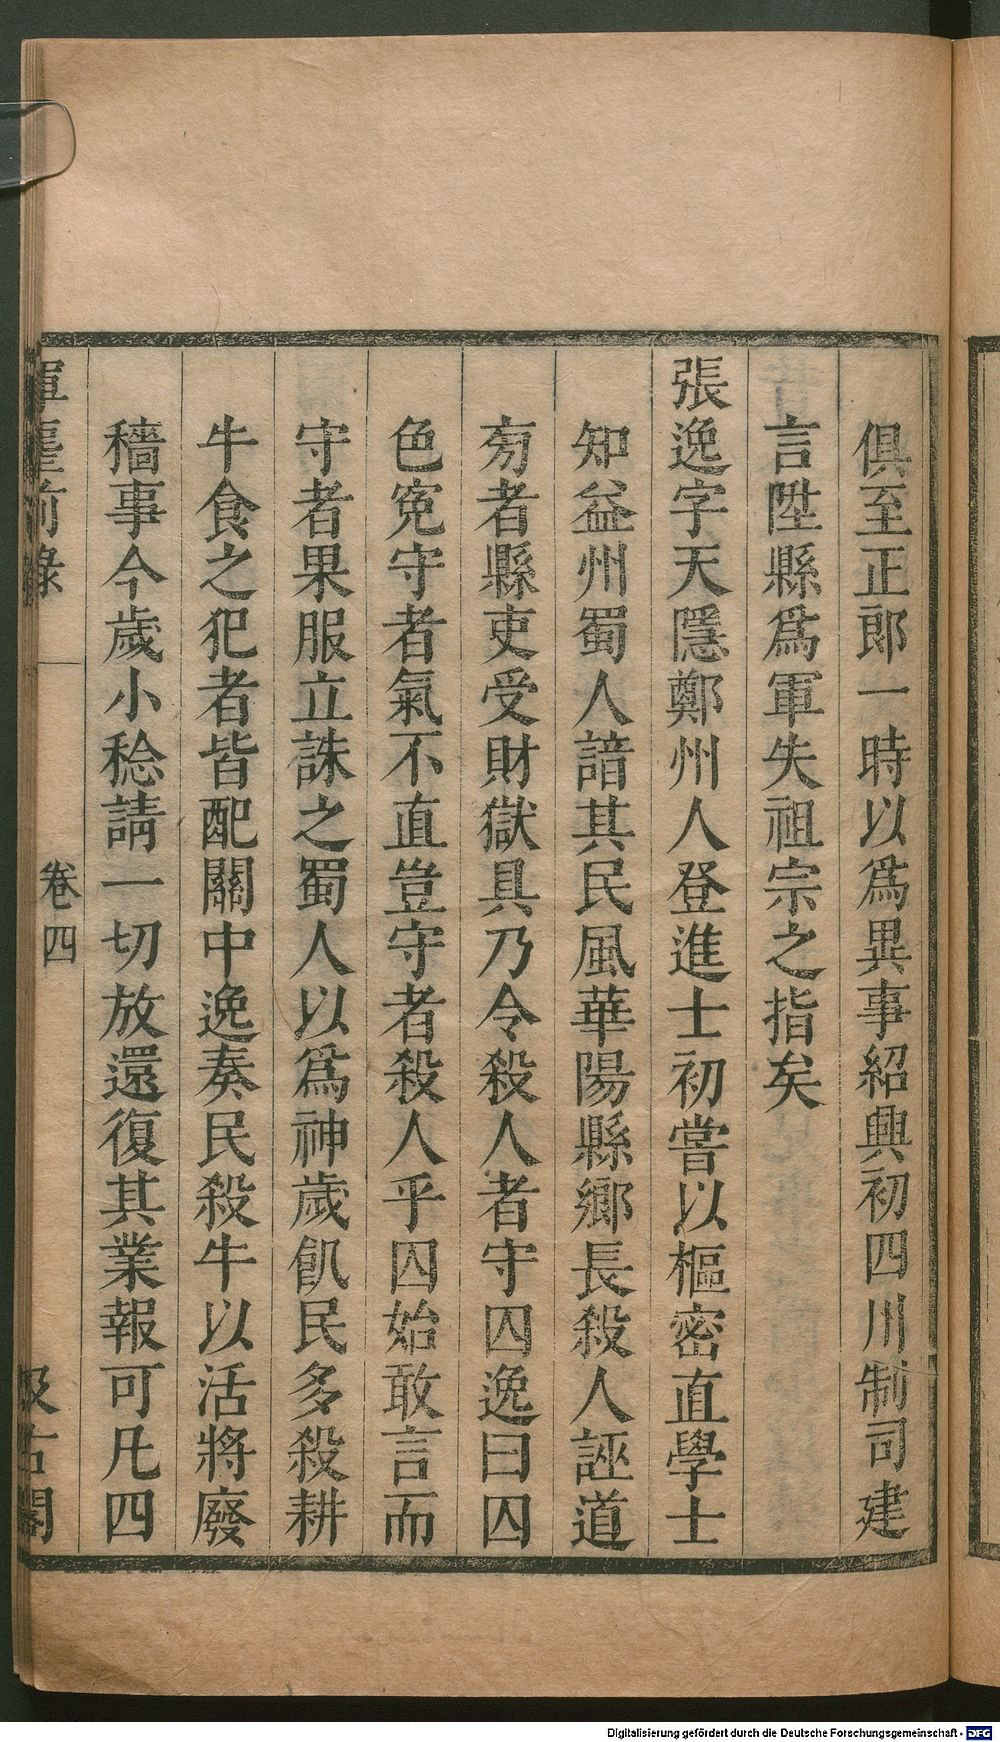 俱至正郎一時以爲異事紹興初四川制司建
言陞縣爲軍失祖宗之指矣
張逸字天隱鄭州人登進士初嘗以樞密直學士
知益州蜀人諳其民風華陽縣鄉長殺人誣道
旁者縣吏受財獄具乃令殺人者守囚逸曰囚
色寃守者氣不直豈守者殺人乎囚始敢言而
守者果服立誅之蜀人以爲神歲飢民多殺耕
牛食之犯者皆配關中逸奏民殺牛以活將廢
穡事今歲小稔請一切放還復其業報可凡四
卷四
汲古閣
Digitalisierung gefördert durch die Deutsche Forschungsgemeinschaft - DFG